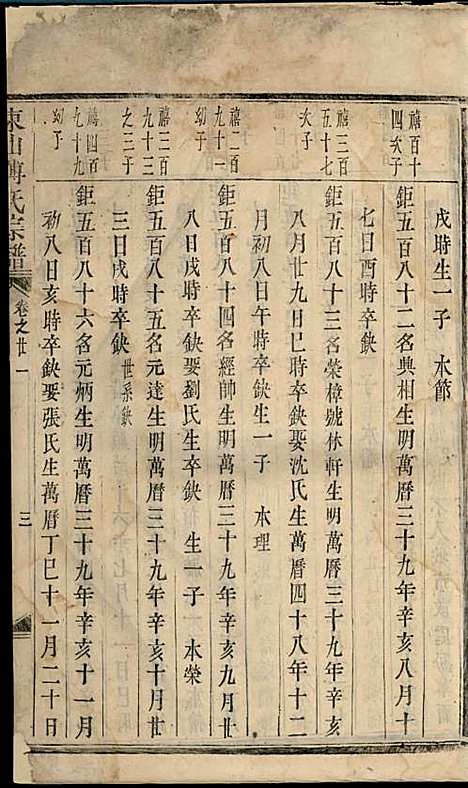 戌時生一子　水節
禧百十四次子
鉅五百八十二名典相生明萬曆三十九年辛亥八月十
七日酉時卒缺
禧三百五十七次子
鉅五百八十三名榮樟號林軒生明萬曆三十九年辛亥
八月廿九日巳時卒缺娶沈氏生萬曆四十八年十二
月初八日午時卒缺生一子　水理
禧二百九十一幼子
鉅五百八十四名經帥生明萬曆三十九年辛亥九月廿
八日戌時卒缺娶劉氏生卒缺　生一子　水榮
禧三百九十三之三子
鉅五百八十五名元達生明萬曆三十九年辛亥十一月廿
三日戌時卒缺世系缺
禧四百九十九幼子
鉅五百八十六名元炳生明萬曆三十九年辛亥十一月
初八日亥時卒缺娶張氏生萬曆丁巳十一月二十日
東山傅氏宗譜　卷之廿一　三